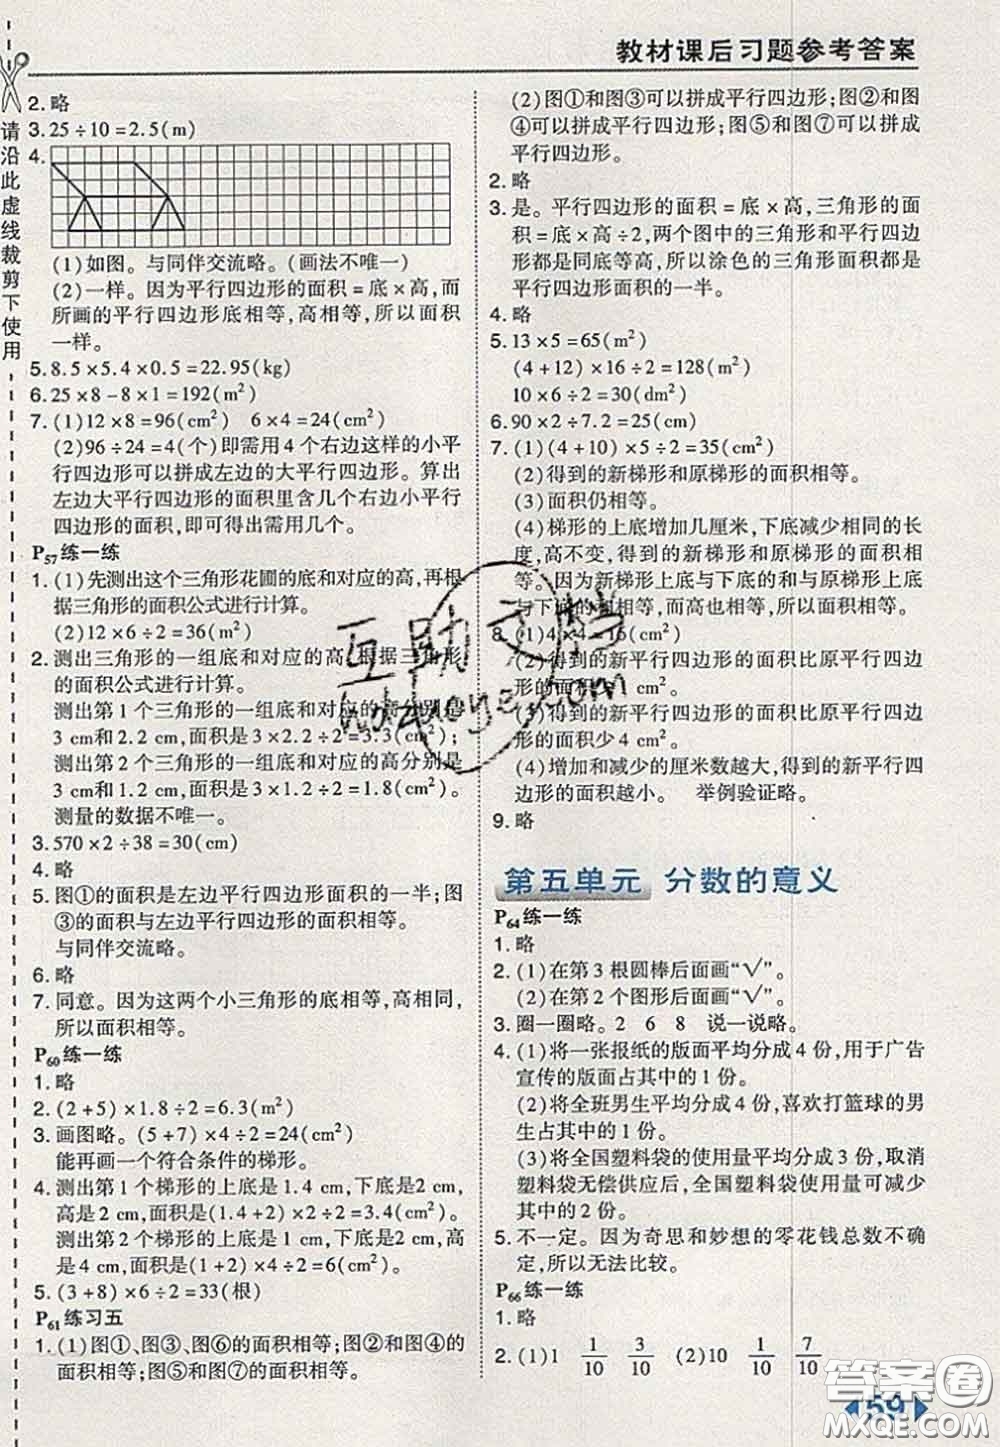 教材课后习题参考答案
请沿此虚线裁剪下使用
2. 略
3. 25÷10=2.5(m)
4.
(1)如图。与同伴交流略。(画法不唯一)
(2)一样。因为平行四边形的面积=底×高,而
所画的平行四边形底相等,高相等,所以面积
一样。
5. 8.5×5.4×0.5=22.95(kg)
6. 25×8-8×1=192(m²)
7. (1)12×8=96(cm²) 6×4=24(cm²)
(2)96÷24=4(个)即需用4个右边这样的小平
行四边形可以拼成左边的大平行四边形。算出
左边大平行四边形的面积里含几个右边小平行
四边形的面积,即可得出需用几个。
P57练一练
1. (1)先测出这个三角形花圃的底和对应的高,再根
据三角形的面积公式进行计算。
(2)12×6÷2=36(m²)
2. 测出三角形的一组底和对应的高,根据三角形
的面积公式进行计算。
测出第1个三角形的一组底和对应的高分别是
3 cm和2.2 cm,面积是3×2.2÷2=3.3(cm²);
测出第2个三角形的一组底和对应的高分别是
3 cm和1.2 cm,面积是3×1.2÷2=1.8(cm²)。
测量的数据不唯一。
3. 570×2÷38=30(cm)
4. 略
5. 图①的面积是左边平行四边形面积的一半;图
③的面积与左边平行四边形的面积相等。
与同伴交流略。
6. 略
7. 同意。因为这两个小三角形的底相等,高相同,
所以面积相等。
P60练一练
1. 略
2. (2+5)×1.8÷2=6.3(m²)
3. 画图略。(5+7)×4÷2=24(cm²)
能再画一个符合条件的梯形。
4. 测出第1个梯形的上底是1.4 cm,下底是2 cm,
高是2 cm,面积是(1.4+2)×2÷2=3.4(cm²)。
测出第2个梯形的上底是1 cm,下底是2 cm,高
是4 cm,面积是(1+2)×4÷2=6(cm²)。
5. (3+8)×6÷2=33(根)
P61练习五
1. (1)图①、图③、图⑥的面积相等;图②和图④的
面积相等;图⑤和图⑦的面积相等。
(2)图①和图③可以拼成平行四边形;图②和图
④可以拼成平行四边形;图⑤和图⑦可以拼成
平行四边形。
2. 略
3. 是。平行四边形的面积=底×高,三角形的面
积=底×高÷2,两个图中的三角形和平行四边
形都是同底等高,所以涂色的三角形面积都是
平行四边形面积的一半。
4. 略
5. 13×5=65(m²)
(4+12)×16÷2=128(m²)
10×6÷2=30(dm²)
6. 90×2÷7.2=25(cm)
7. (1)(4+10)×5÷2=35(cm²)
(2)得到的新梯形和原梯形的面积相等。
(3)面积仍相等。
(4)梯形的上底增加几厘米,下底减少相同的长
度,高不变,得到的新梯形和原梯形的面积相
等。因为新梯形上底与下底的和与原梯形上底
与下底的和相等,而高也相等,所以面积相等。
8. (1)4×4=16(cm²)
(2)得到的新平行四边形的面积比原平行四边
形的面积少1 cm²。
(3)得到的新平行四边形的面积比原平行四边
形的面积少4 cm²。
(4)增加和减少的厘米数越大,得到的新平行四
边形的面积越小。 举例验证略。
9. 略
第五单元 分数的意义
P64练一练
1. 略
2. (1)在第3根圆棒后面画“√”。
(2)在第2个图形后面画“√”。
3. 圈一圈略。2 6 8 说一说略。
4. (1)将一张报纸的版面平均分成4份,用于广告
宣传的版面占其中的1份。
(2)将全班男生平均分成4份,喜欢打篮球的男
生占其中的3份。
(3)将全国塑料袋的使用量平均分成3份,取消
塑料袋无偿供应后,全国塑料袋使用量可减少其
中的2份。
5. 不一定。因为奇思和妙想的零花钱总数不确
定,所以无法比较。
P66练一练
1. 略
2. (1)1 1/10 3/10 (2)10 1/10 7/10
59
互助文档
huzhuwendang.com
答案圈
MXQE.COM